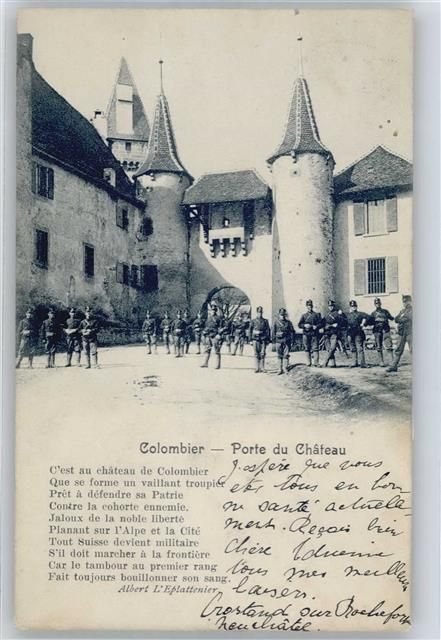 Colombier — Porte du Château
C'est au château de Colombier
Que se forme un vaillant troupier
Prêt à défendre sa Patrie
Contre la cohorte ennemie.
Jaloux de la noble liberté
Planant sur l'Alpe et la Cité
Tout Suisse devient militaire
S'il doit marcher à la frontière
Car le tambour au premier rang
Fait toujours bouillonner son sang.
Albert L'Eplattenier
J'espère que vous
etes tous en bon
ne santé actuelle
ment. Reçois bien
chère
tous mes meilleurs
baisers.
sur Rochefort
Neuchâtel